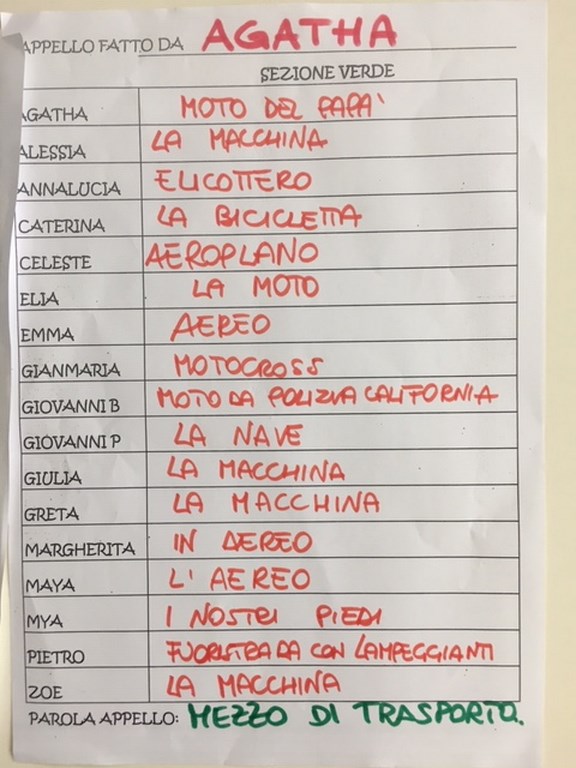 APPELLO FATTO DA AGATHA
SEZIONE VERDE
AGATHA MOTO DEL PAPA'
ALESSIA LA MACCHINA
ANNALUCIA ELICOTTERO
CATERINA LA BICICLETTA
CELESTE AEROPLANO
ELIA LA MOTO
EMMA AEREO
GIANMARIA MOTOCROSS
GIOVANNI B MOTO DA POLIZIA CALIFORNIA
GIOVANNI P LA NAVE
GIULIA LA MACCHINA
GRETA LA MACCHINA
MARGHERITA IN AEREO
MAYA L'AEREO
MYA I NOSTRI PIEDI
PIETRO FUORISTRADA CON LAMPEGGIANTI
ZOE LA MACCHINA
PAROLA APPELLO: MEZZO DI TRASPORTO.